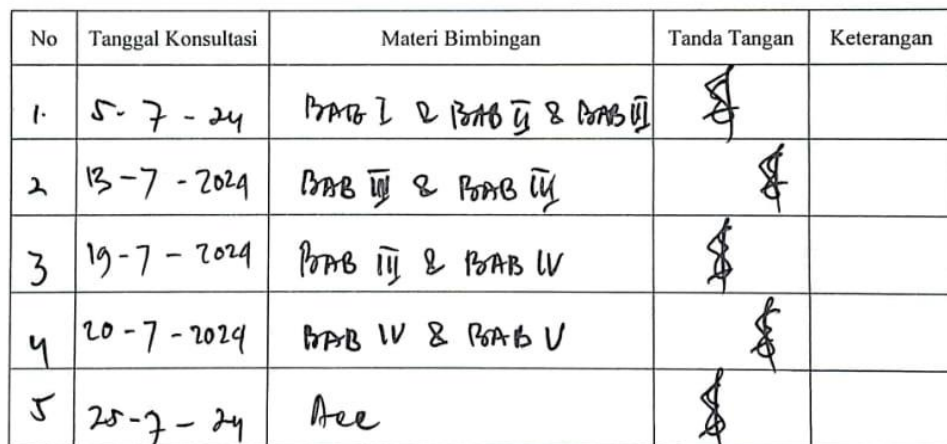 No Tanggal Konsultasi Materi Bimbingan Tanda Tangan Keterangan
1. 5-7-24 BAB I & BAB II & BAB III
2 13-7-2024 BAB III & BAB
3 19-7-2024 BAB III & BAB IV
4 20-7-2024 BAB IV & BAB V
5 25-7-24 Acc